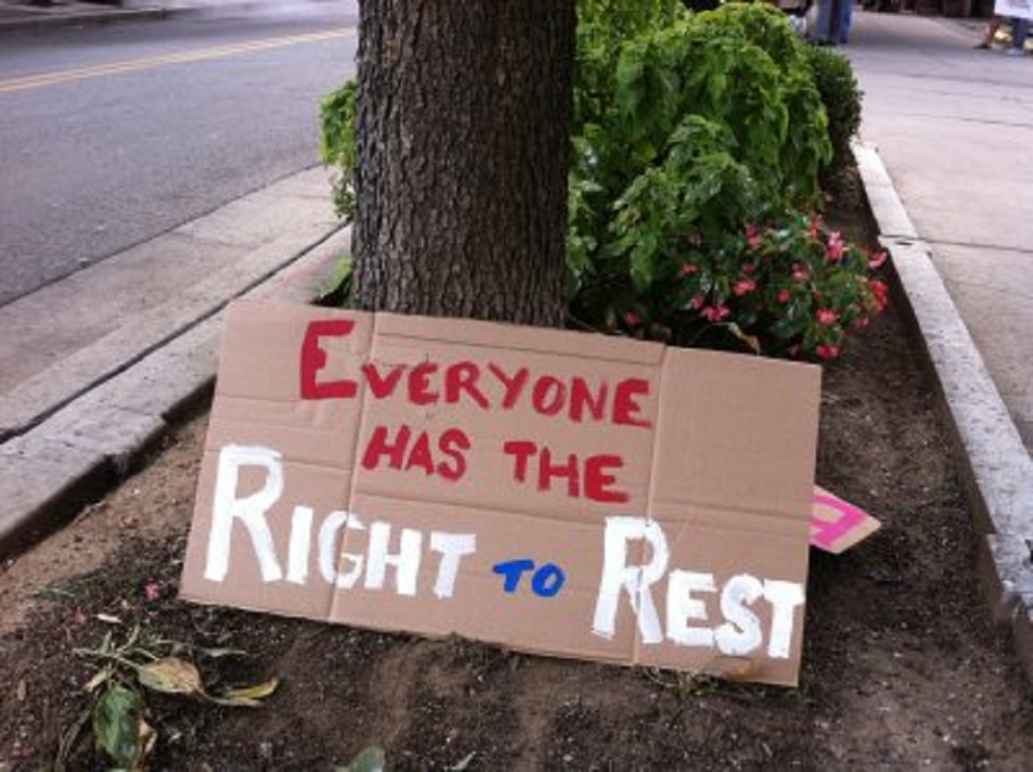 EVERYONE
HAS THE
RIGHT TO REST